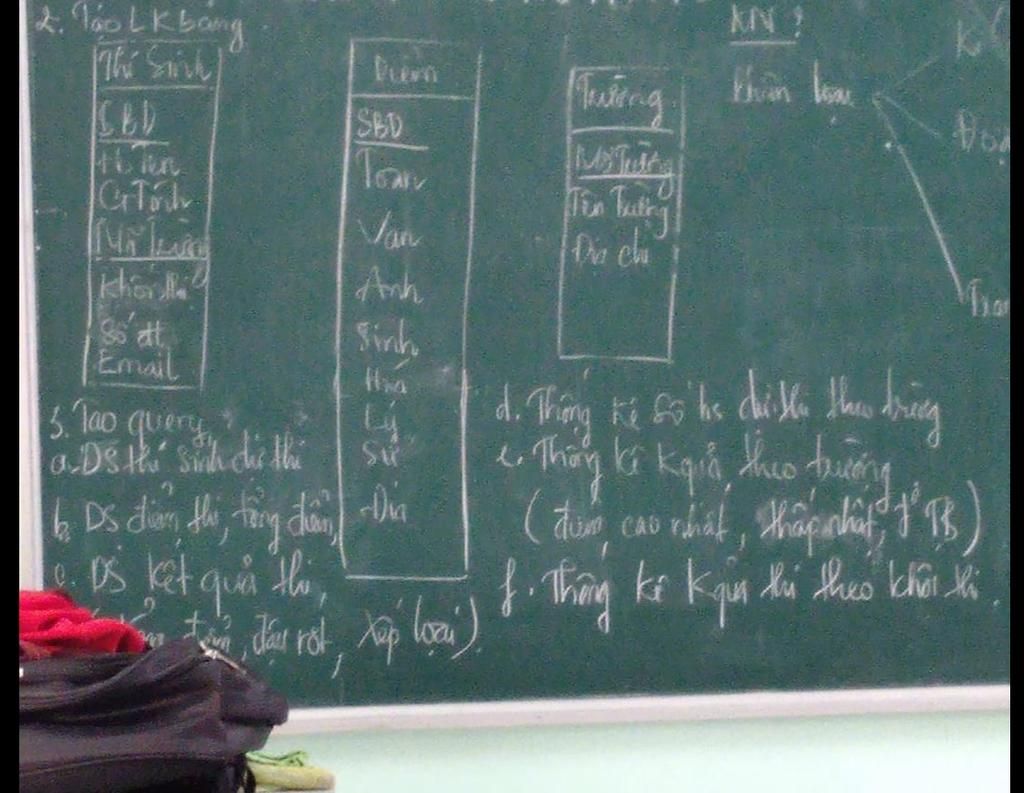 2. Tạo LK bảng
Thí Sinh
SBD
Họ Tên
GTính
Mã Trường
Khối thi
Số đt
Email
Điểm
SBD
Toán
Văn
Anh
Sinh
Hoá
Lý
Sử
Địa
Trường
Mã Trường
Tên Trường
Địa chỉ
KN?
Phân loại
3. Tạo query
a. DS thí sinh dự thi
b. DS điểm thi, tổng điểm
c. DS kết quả thi,
điểm, đậu rớt, xếp loại)
d. Thống kê số hs dự thi theo trường
e. Thống kê kquả theo trường
(điểm cao nhất, thấp nhất, đ TB)
f. Thống kê Kquả thi theo khối thi.